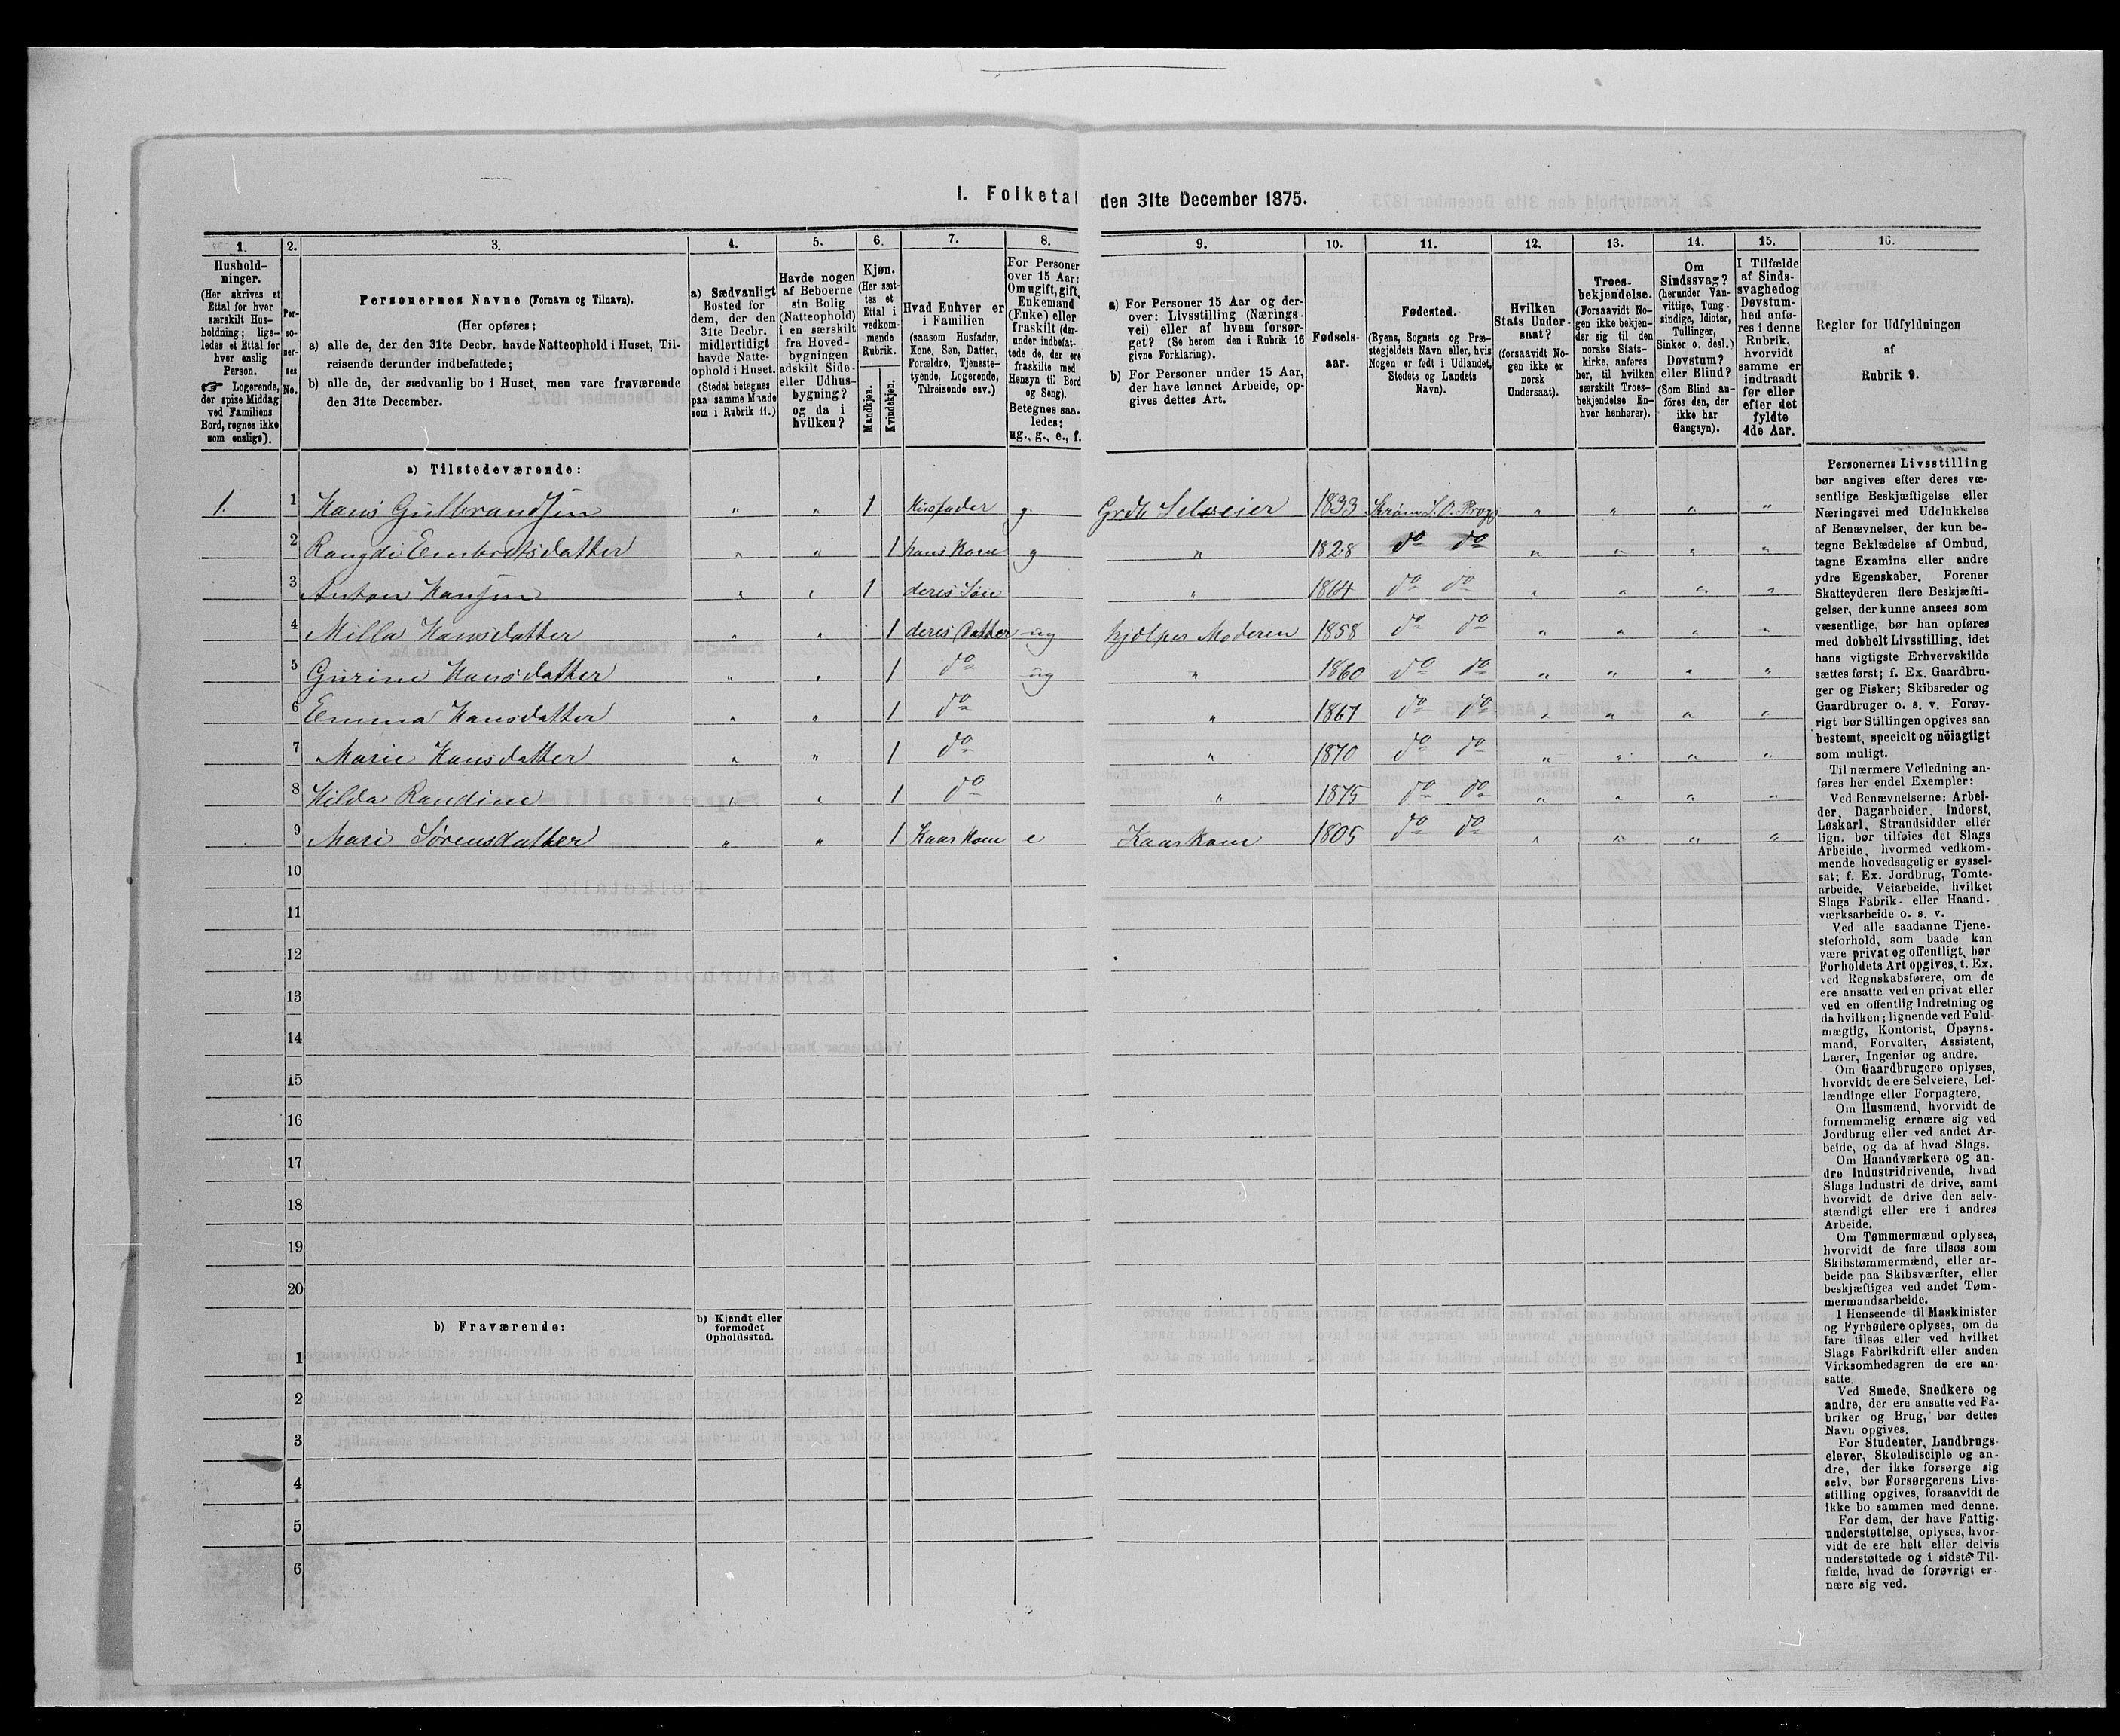 I. Folketal den 31te December 1875.
1. 2. 3. 4. 5. 6. 7. 8. 9. 10. 11. 12. 13. 14. 15. 16.
Hushold-
ninger.
(Her skrives et
Ettal for hver
særskilt Hus-
holdning; lige-
ledes et Ettal for
hver enslig
Person.
☞ Logerende,
der spise Middag
ved Familiens
Bord, regnes ikke
som enslige).
Per-
so-
ner-
nes
No.
Personernes Navne (Fornavn og Tilnavn).
(Her opføres:
a) alle de, der den 31te Decbr. havde Natteophold i Huset, Til-
reisende derunder indbefattede;
b) alle de, der sædvanlig bo i Huset, men vare fraværende
den 31te December.
a) Sædvanligt
Bosted for
dem, der den
31te Decbr.
midlertidigt
havde Natte-
ophold i Huset.
(Stedet betegnes
paa samme Maade
som i Rubrik 11.)
Havde nogen
af Beboerne
sin Bolig
(Natteophold)
i en særskilt
fra Hoved-
bygningen
adskilt Side-
eller Udhus-
bygning?
og da i
hvilken?
Kjøn.
(Her sæt-
tes et
Ettal i
vedkom-
mende
Rubrik.
Mandkjøn.
Kvindekjøn.
Hvad Enhver er
i Familien
(saasom Husfader,
Kone, Søn, Datter,
Forældre, Tjeneste-
tyende, Logerende,
Tilreisende osv.)
For Personer
over 15 Aar:
Om ugift, gift,
Enkemand
(Enke) eller
fraskilt (der-
under indbefat-
tede de, der ere
fraskilte med
Hensyn til Bord
og Seng).
Betegnes saa-
ledes:
ug., g., e., f.
a) For Personer 15 Aar og der-
over: Livsstilling (Nærings-
vei) eller af hvem forsør-
get? (Se herom den i Rubrik 16
givne Forklaring).
b) For Personer under 15 Aar,
der have lønnet Arbeide, op-
gives dettes Art.
Fødsels-
aar.
Fødested.
(Byens, Sognets og Præ-
stegjeldets Navn eller, hvis
Nogen er født i Udlandet,
Stedets og Landets
Navn).
Hvilken
Stats Under-
saat?
(forsaavidt No-
gen ikke er
norsk
Undersaat).
Troes-
bekjendelse.
(Forsaavidt No-
gen ikke bekjen-
der sig til den
norske Stats-
kirke, anføres
her, til hvilken
særskilt Troes-
bekjendelse En-
hver henhører).
Om
Sindssvag?
(herunder Van-
vittige, Tung-
sindige, Idioter,
Tullinger,
Sinker o. desl.)
Døvstum?
eller Blind?
(Som Blind an-
føres den, der
ikke har
Gangsyn).
I Tilfælde
af Sinds-
svaghed og
Døvstum-
hed anfø-
res i denne
Rubrik,
hvorvidt
samme er
indtraadt
før eller
efter det
fyldte
4de Aar.
Regler for Udfyldningen
af
Rubrik 9.
a) Tilstedeværende:
1. 1 Hans Gulbrandsen " " 1 Husfader g. Grdb Selveier 1833 " " " "
2 Rangdi Embretsdatter " " 1 hans Kone g " 1828 do do " " " "
3 Anton Hansen " " 1 deres Søn " 1864 do do " " " "
4 Milla Hansdatter " " 1 deres Datter ug hjælper Moderen 1858 do do " " " "
5 Gurine Hansdatter " " 1 do ug " 1860 do do " " " "
6 Emma Hansdatter " " 1 do " 1867 do do " " " "
7 Marie Hansdatter " " 1 do " 1870 do do " " " "
8 Hilda Randine " " 1 do " 1875 do do " " " "
9 Mari Sørensdatter " " 1 Kaarkone e Kaarkone 1805 do do " " " "
10
11
12
13
14
15
16
17
18
19
20
b) Fraværende:
b) Kjendt eller
formodet
Opholdssted.
1
2
3
4
5
6
Personernes Livsstilling
bør angives efter deres væ-
sentlige Beskjæftigelse eller
Næringsvei med Udelukkelse
af Benævnelser, der kun be-
tegne Beklædelse af Ombud,
tagne Examina eller andre
ydre Egenskaber. Forener
Skatteyderen flere Beskjæfti-
gelser, der kunne ansees som
væsentlige, bør han opføres
med dobbelt Livsstilling, idet
hans vigtigste Erhvervskilde
sættes først; f. Ex. Gaardbru-
ger og Fisker; Skibsreder og
Gaardbruger o. s. v. Forøv-
rigt bør Stillingen opgives saa
bestemt, specielt og nöiagtigt
som muligt.
Til nærmere Veiledning an-
føres her endel Exempler:
Ved Benævnelserne: Arbei-
der, Dagarbeider, Inderst,
Løskarl, Strandsidder eller
lign. bør tilføies det Slags
Arbeide, hvormed vedkom-
mende hovedsagelig er syssel-
sat; f. Ex. Jordbrug, Tomte-
arbeide, Veiarbeide, hvilket
Slags Fabrik- eller Haand-
værksarbeide o. s. v.
Ved alle saadanne Tjene-
steforhold, som baade kan
være privat og offentligt, bør
Forholdets Art opgives, t. Ex.
ved Regnskabsførere, om de
ere ansatte ved en privat eller
ved en offentlig Indretning og
da hvilken; lignende ved Fuld-
mægtig, Kontorist, Opsyns-
mand, Forvalter, Assistent,
Lærer, Ingeniør og andre.
Om Gaardbrugere oplyses,
hvorvidt de ere Selveiere, Lei-
lændinge eller Forpagtere.
Om Husmænd, hvorvidt de
fornemmelig ernære sig ved
Jordbrug eller ved andet Ar-
beide, og da af hvad Slags.
Om Haandværkere og an-
dre Industridrivende, hvad
Slags Industri de drive, samt
hvorvidt de drive den selv-
stændigt eller ere i andres
Arbeide.
Om Tømmermænd oplyses,
hvorvidt de fare tilsøs som
Skibstømmermænd, eller ar-
beide paa Skibsværfter, eller
beskjæftiges ved andet Tøm-
mermandsarbeide.
I Henseende til Maskinister
og Fyrbødere oplyses, om de
fare tilsøs eller ved hvilket
Slags Fabrikdrift eller anden
Virksomhedsgren de ere an-
satte.
Ved Smede, Snedkere og
andre, der ere ansatte ved Fa-
briker og Brug, bør dettes
Navn opgives.
For Studenter, Landbrugs-
elever, Skoledisciple og an-
dre, der ikke forsørge sig
selv, bør Forsørgerens Livs-
stilling opgives, forsaavidt de
ikke bo sammen med denne.
For dem, der have Fattig-
understøttelse, oplyses, hvor-
vidt de ere helt eller delvis
understøttede og i sidste Til-
fælde, hvad de forøvrigt er-
nære sig ved.